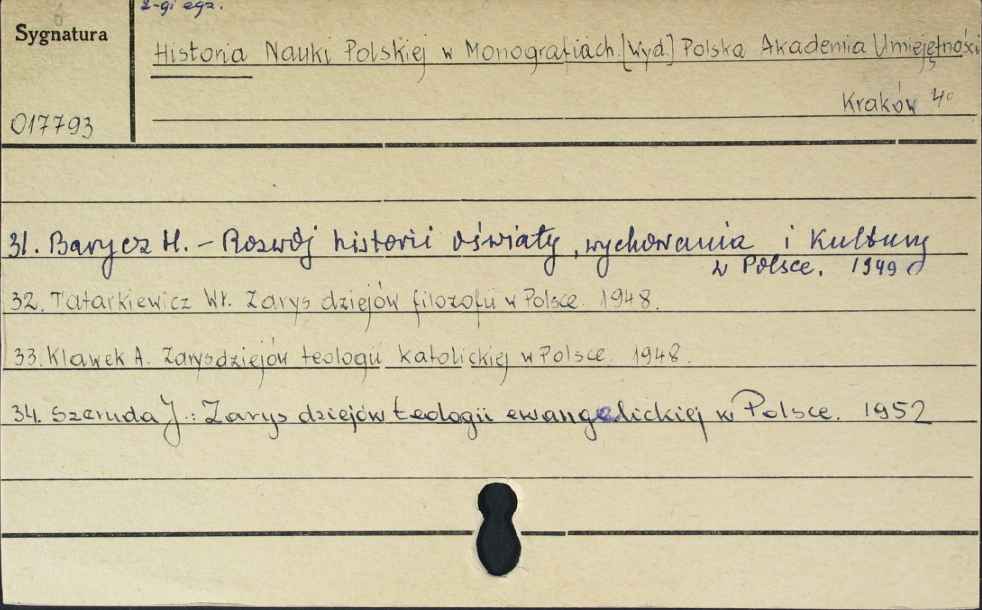 2-gi egz.
Sygnatura
Historia Nauki Polskiej w Monografiach. [Wyd.] Polska Akademia Umiejętności
Kraków 4°
017793
31. Barycz H. – Rozwój historii oświaty, wychowania i Kultury
w Polsce. 1949
32. Tatarkiewicz Wł. Zarys dziejów filozofii w Polsce. 1948.
33. Klawek A. Zarys dziejów teologii katolickiej w Polsce. 1948.
34. Szeruda J.: Zarys dziejów teologii ewangelickiej w Polsce. 1952